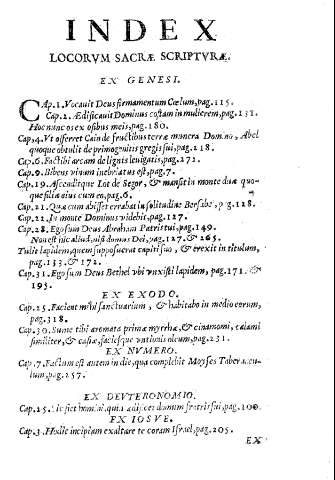 INDEX
LOCORVM SACRÆ SCRIPTVRÆ.
EX GENESI.
CAp. 1. Vocauit Deus firmamentum Cœlum, pag. 115.
Cap. 2. Ædificauit Dominus costam in mulierem, pag. 131.
Hoc nunc os ex ossibus meis, pag. 180.
Cap. 4. Vt offerret Cain de fructibus terræ munera Domino, Abel
quoque obtulit de primogenitis gregis sui, pag. 118.
Cap. 6. Fac tibi arcam de lignis leuigatis, pag. 172.
Cap. 9. Bibens vinum inebriatus est, pag. 7.
Cap. 19. Ascenditque Lot de Segor, & mansit in monte duæ quo-
que filiæ eius cum eo, pag. 6.
Cap. 21. Quæ cum abisset errabat in solitudine Bersabe, pag. 128.
Cap. 22. In monte Dominus videbit, pag. 127.
Cap. 28. Ego sum Deus Abraham Patris tui, pag. 149.
Non est hic aliud, nisi domus Dei, pag. 127. & 265.
Tulit lapidem, quem supposuerat capiti suo, & erexit in titulum,
pag. 133. & 172.
Cap. 31. Ego sum Deus Bethel vbi vnxisti lapidem, pag. 171. &
193.
EX EXODO.
Cap. 25. Facient mihi sanctuarium, & habitabo in medio eorum,
pag. 318.
Cap. 30. Sume tibi aromata prima myrrhæ, & cinamomi, calami
similiter, & casiæ, faciesque vnctionis oleum, pag. 231.
EX NVMERO.
Cap. 7. Factum est autem in die, qua complebit Moyses Tabernacu-
lum, pag. 257.
EX DEVTERONOMIO.
Cap. 25. Sic fiet homini, qui non ædificat domum fratris sui, pag. 100.
EX IOSVE.
Cap. 3. Hodie incipiam exaltare te coram Israel, pag. 205.
EX